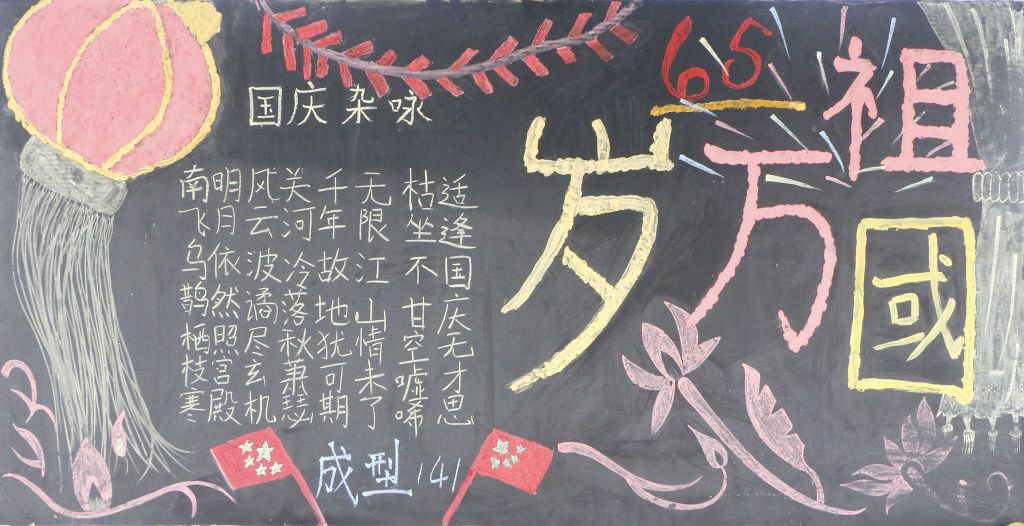 65
祖國
万岁
国庆杂咏
适逢国庆无才思
枯坐不甘空嘘唏
无限江山情未了
千年故地犹可期
关河冷落秋萧瑟
风云波谲尽玄机
明月依然照宫殿
南飞乌鹊栖枝寒
成型141